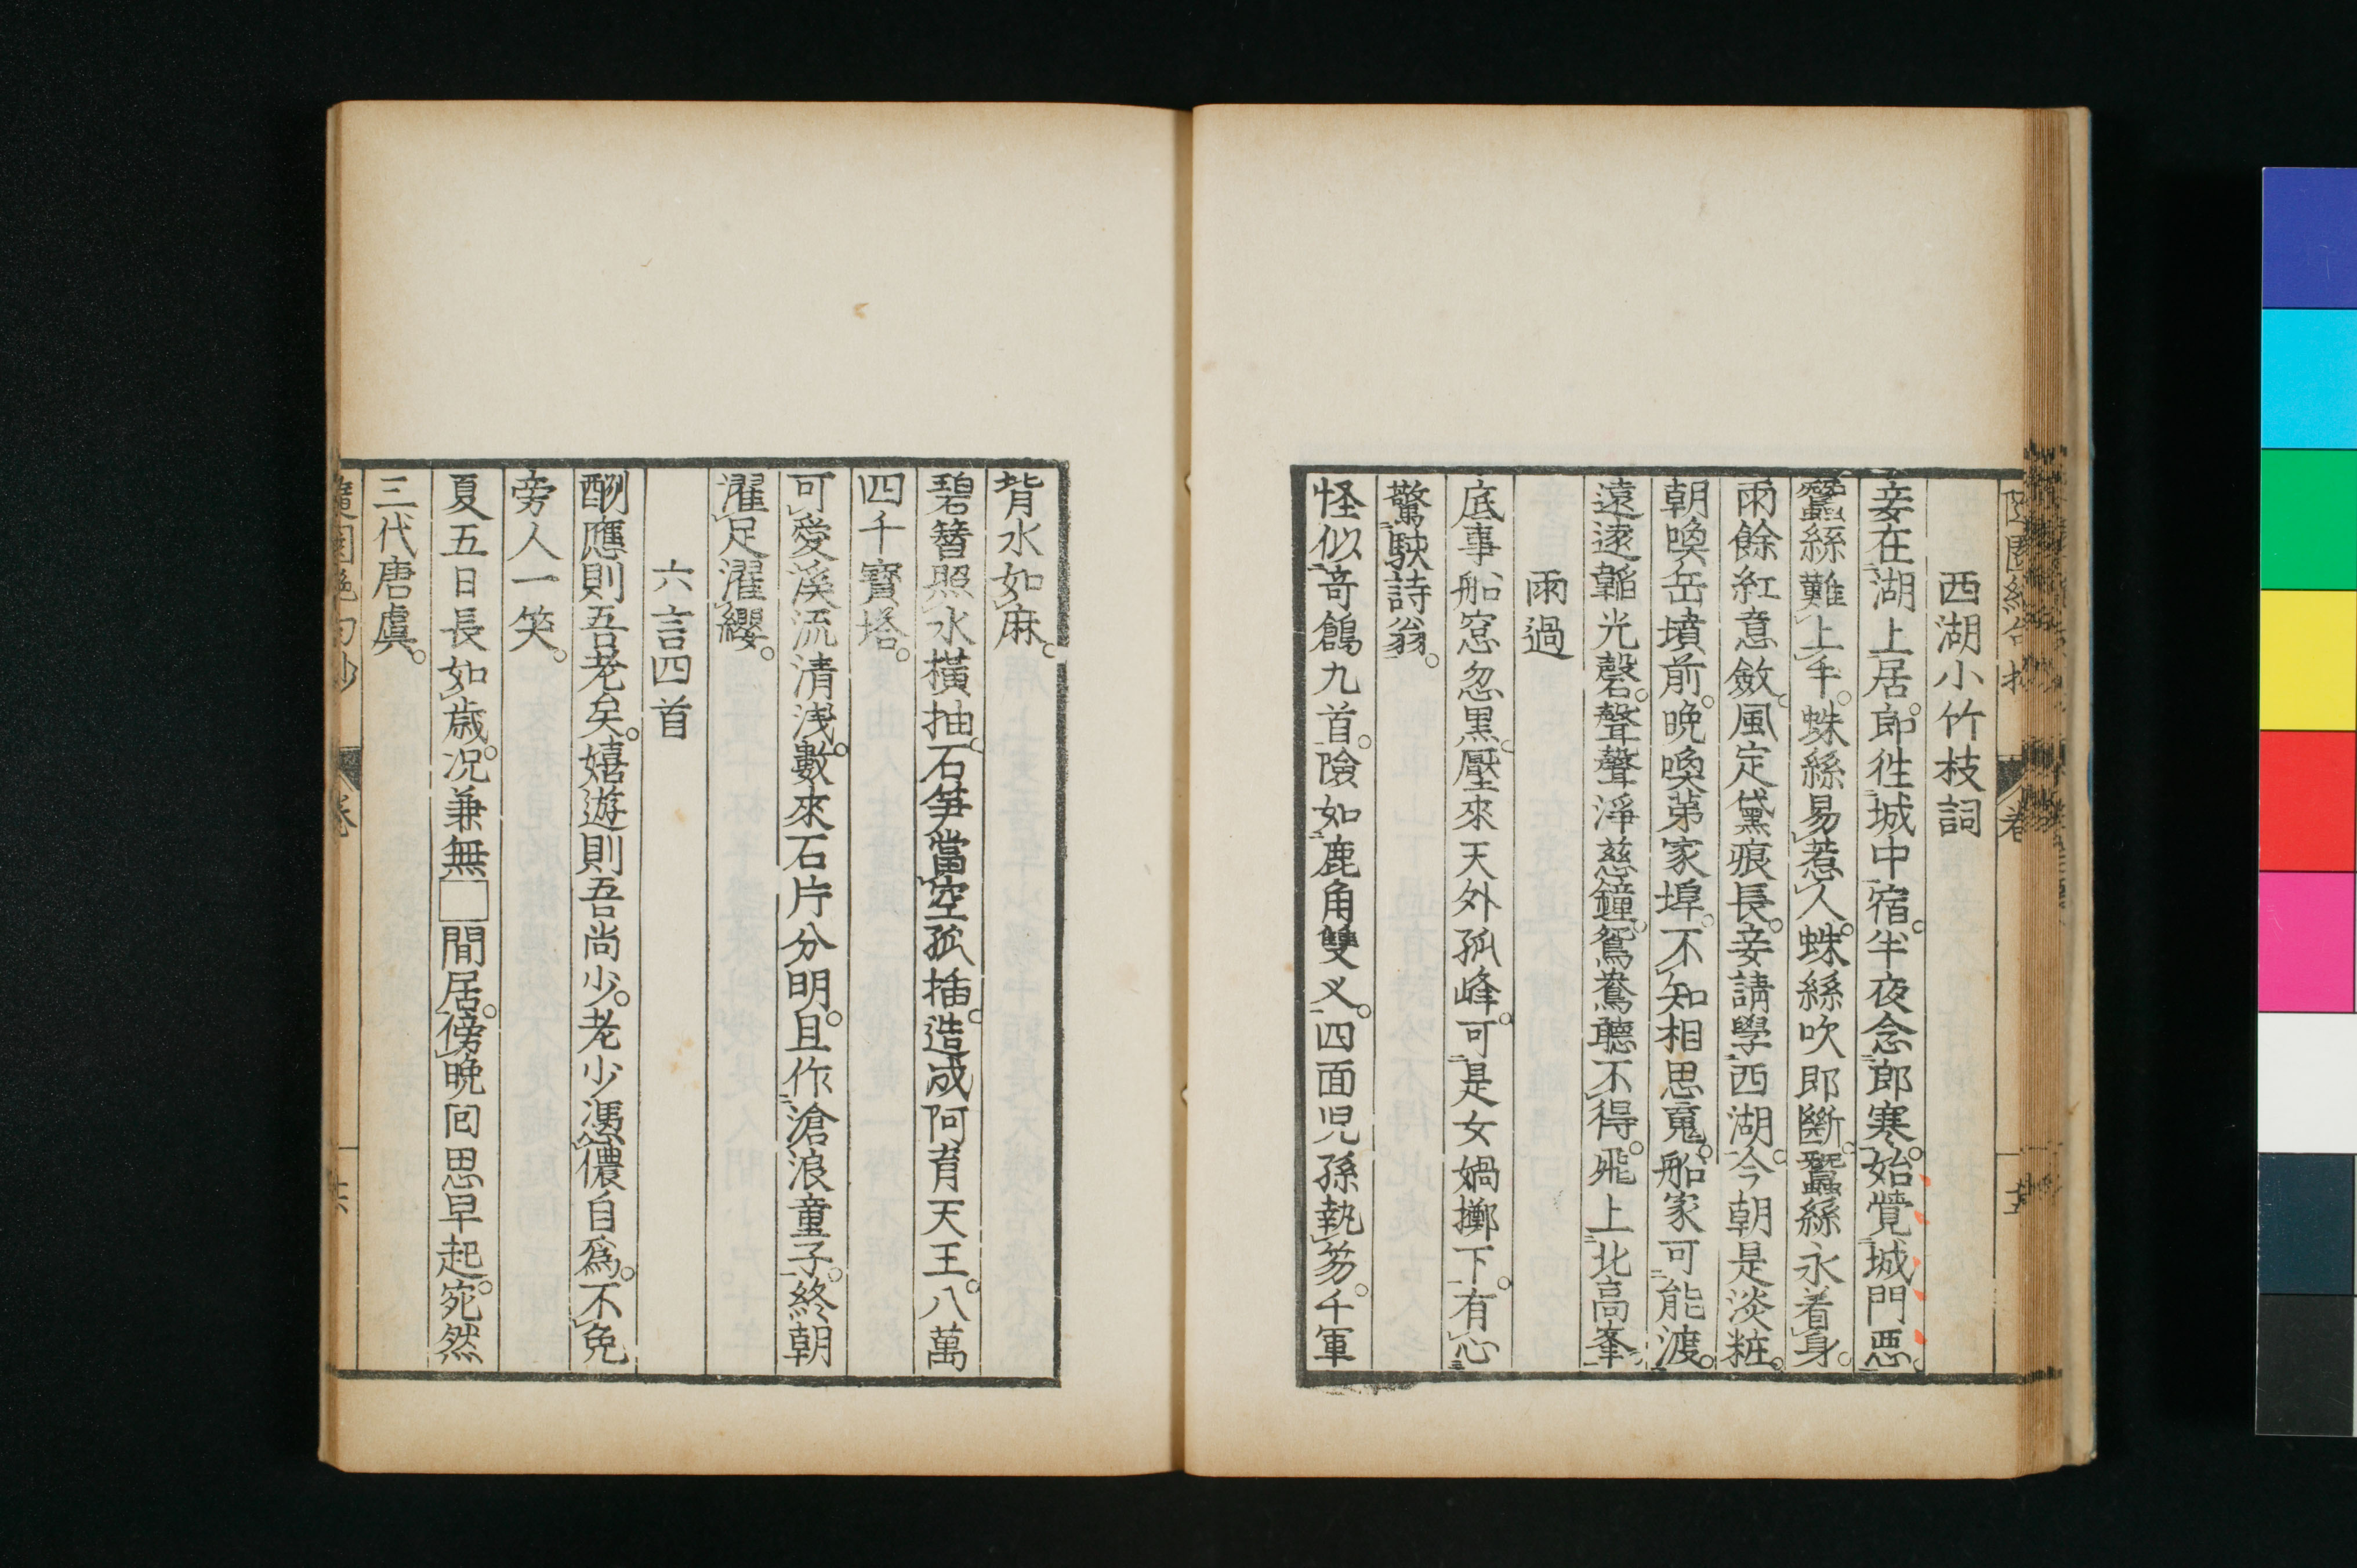 西湖小竹枝詞
妾在湖上居。郎徃城中宿。半夜念郎寒。始覺城門惡。
蠶絲難上手。蛛絲易惹人。蛛絲吹郎斷。蠶絲永着身。
雨餘紅意斂。風定黛痕長。妾請學西湖。今朝是淡粧。
朝喚岳墳前。晩喚苐家埠。不知相思䰟。船家可能渡。
遠遠韜光磬。聲聲淨慈鐘。鴛鴦聽不得。飛上北高峯。
雨過
底事船窓忽黒。壓來天外孤峰。可是女媧擲下。有心
驚駛詩翁。
怪似竒鶬九首。險如鹿角雙叉。四面児孫執笏。千軍
背水如麻。
碧簪照水橫抽。石笋當空孤插。造成阿育天王。八萬
四千寳塔。
可愛溪流清浅。數來石片分明。且作滄浪童子。終朝
濯足濯纓。
六言四首
酬應則吾老矣。嬉遊則吾尚少。老少憑儂自爲。不免
旁人一笑。
夏五日長如歳。况兼無□閒居。傍晩囘思早起。宛然
三代唐虞。
園絶句抄
卷